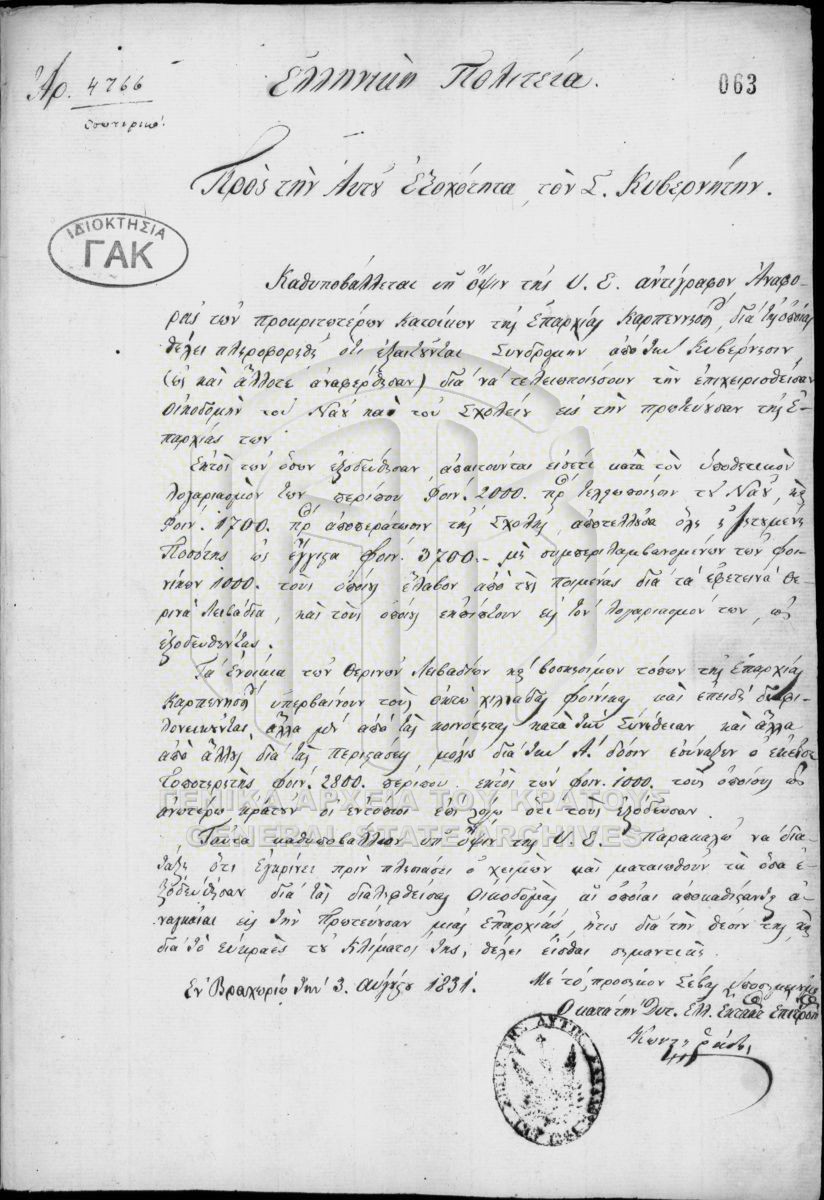 Ἀρ. 4766
Ἐσωτερικό.
Ἑλληνικὴ Πολιτεία.
063
Πρὸς τὴν Αὐτοῦ Ἐξοχότητα, τὸν Σ. Κυβερνήτην.
ΙΔΙΟΚΤΗΣΙΑ
ΓΑΚ
Καθυποβάλλεται ὑπ' ὄψιν τῆς Υ. Ε. ἀντίγραφον Ἀναφο-
ρᾶς τῶν προκριτωτέρων κατοίκων τῆς Ἐπαρχίας Καρπεννησίου, διὰ τῆς ὁποίας
θέλει πληροφορηθῆ ὅτι ἐξαιτοῦνται Συνδρομὴν ἀπὸ τὴν Κυβέρνησιν
(ὡς καὶ ἄλλοτε ἀναφέρθησαν) διὰ νὰ τελειωποιήσουν τὴν ἐπιχειρισθεῖσαν
Οἰκοδομὴν τοῦ Ναοῦ καὶ τοῦ Σχολείου εἰς τὴν πρωτεύουσαν τῆς Ἐ-
παρχίας των.
Ἐκτὸς τῶν ὅσων ἐξοδεύθησαν ἀπαιτοῦνται εἰσέτι κατὰ τὸν ὑποθετικὸν
λογαριασμόν των περίπου φοίν. 2000. πρὸς τελειωποίησιν τοῦ Ναοῦ, καὶ
φοίν. 1700. πρὸς ἀποπεράτωσιν τῆς Σχολῆς, ἀποτελοῦσα ὅλη ἡ ζητουμένη
Ποσότης ὡς ἔγγιστα φοίν. 3700.- μὲ συμπεριλαμβανομένων τῶν φοι-
νίκων 1000. τοὺς ὁποίους ἔλαβον ἀπὸ τοὺς ποιμένας διὰ τὰ ἐφετεινὰ θε-
ρινὰ λειβάδια, καὶ τοὺς ὁποίους ἐκπίπτουν εἰς τὸν λογαριασμόν των, ὡς
ἐξοδευθέντας.
Τὰ ἐνοίκια τῶν θερινῶν λειβαδίων καὶ βοσκησίμων τόπων τῆς Ἐπαρχίας
Καρπεννησίου ὑπερβαίνουν τοὺς ὀκτὼ χιλιάδας φοίνικας καὶ ἐπειδὴ διαφι-
λονεικοῦνται, ἄλλα μὲν ἀπὸ τὰς κοινότητας κατὰ τὴν Συνήθειαν καὶ ἄλλα
ἀπὸ ἄλλους διὰ τὰς περιστάσεις μόλις διὰ τὴν Α. δόσιν ἐσύναξεν ὁ ἐκεῖσε
Τοποτηρητὴς φοίν. 2800. περίπου ἐκτὸς τῶν φοιν. 1000. τοὺς ὁποίους ὡς
ἀνωτέρω κρατοῦν οἱ ἐντόπιοι ἐπὶ λόγῳ ὅτι τοὺς ἐξόδευσαν.
ΓΕΝΙΚΑ ΑΡΧΕΙΑ ΤΟΥ ΚΡΑΤΟΥΣ
GENERAL STATE ARCHIVES
Ταῦτα καθυποβάλλων ὑπ' ὄψιν τῆς Υ. Ε. παρακαλῶ νὰ δια-
τάξῃ ὅτι ἐγκρίνει πρὶν πλησιάσει ὁ χειμὼν καὶ ματαιωθοῦν τὰ ὅσα ἐ-
ξοδεύθησαν διὰ τὰς διαληφθείσας Οἰκοδομὰς αἱ ὁποῖαι ἀποκαθίστανται ἀ-
ναγκαῖαι εἰς τὴν Πρωτεύουσαν μιᾶς Ἐπαρχίας, ἥτις διὰ τὴν θέσιν της, καὶ
διὰ τὸ εὐκραὲς τοῦ Κλίματός της, θέλει εἶσθαι σημαντική.
Ἐν Βραχωρίῳ τὴν 3. Αὐγούστου 1831.
Μὲ τὸ προσῆκον Σέβας ὑποσημειοῦμαι
Ὁ κατὰ τὴν Δυτ. Ἑλλ. Ἔκτακτος Ἐπίτροπος